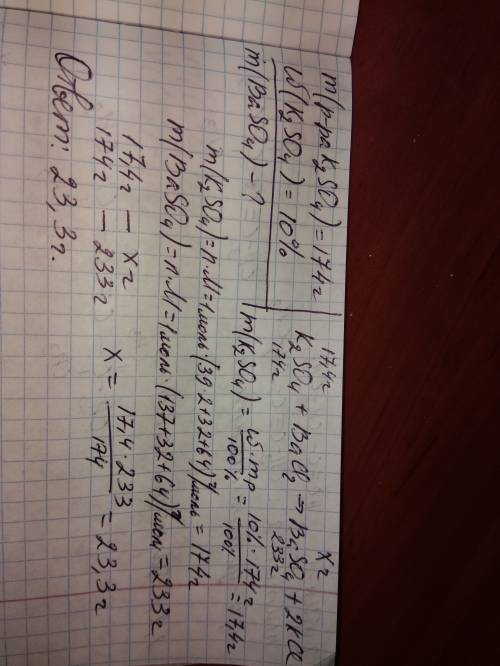 m(р-ра K₂SO₄) = 174г
ω(K₂SO₄) = 10%
m(BaSO₄) - ?
17,4г xг
K₂SO₄ + BaCl₂ → BaSO₄ + 2KCl
174г 233г
m(K₂SO₄) = ω·mр/100% = 10%·174г/100% = 17,4г
m(K₂SO₄) = n·M = 1моль·(39·2+32+64)г/моль = 174г
m(BaSO₄) = n·M = 1моль·(137+32+64)г/моль = 233г
17,4г — xг
174г — 233г
x = 17,4·233/174 = 23,3г
Ответ: 23,3г.